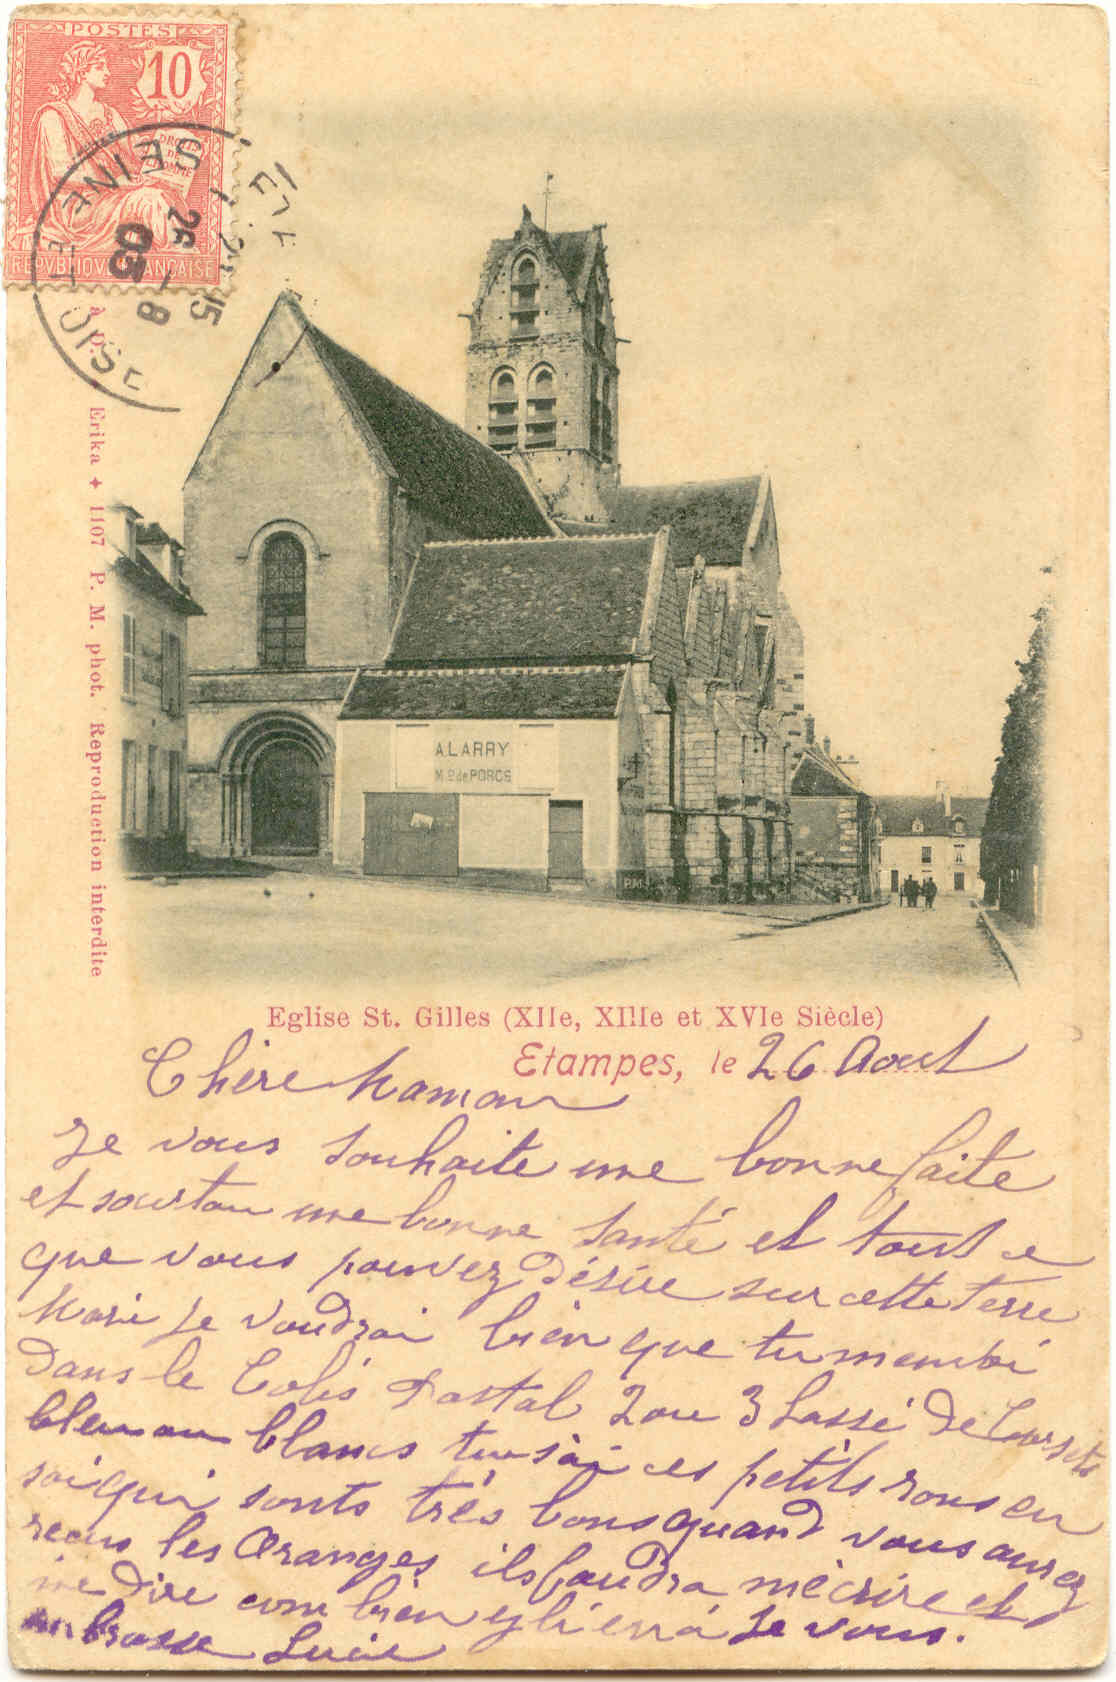 POSTES
10
DROITS
DE
L'HOMME
REPVBLIQVE FRANÇAISE
SEINE ET OISE
26
-8
03
à D.
Erika ✦ 1107 P. M. phot. Reproduction interdite
A. LARRY
Md de PORCS
P.M.
Eglise St. Gilles (XIIe, XIIIe et XVIe Siècle)
Etampes, le 26 Aout
Chère Maman
Je vous souhaite une bonne faite
et sourtou une bonne santé et tout ce
que vous pouvez désire sur cette terre
Marie je voudrai bien que tu menvoi
Dans le Colis Postal 2 ou 3 Lassé de Corsets
bleu ou blancs tu sai ces petits rons en
soi qui sonts très bons quand vous aurez
recus les Oranges ils faudra mècrire et
me dire combien y li en a Je vous
embrasse Lucie